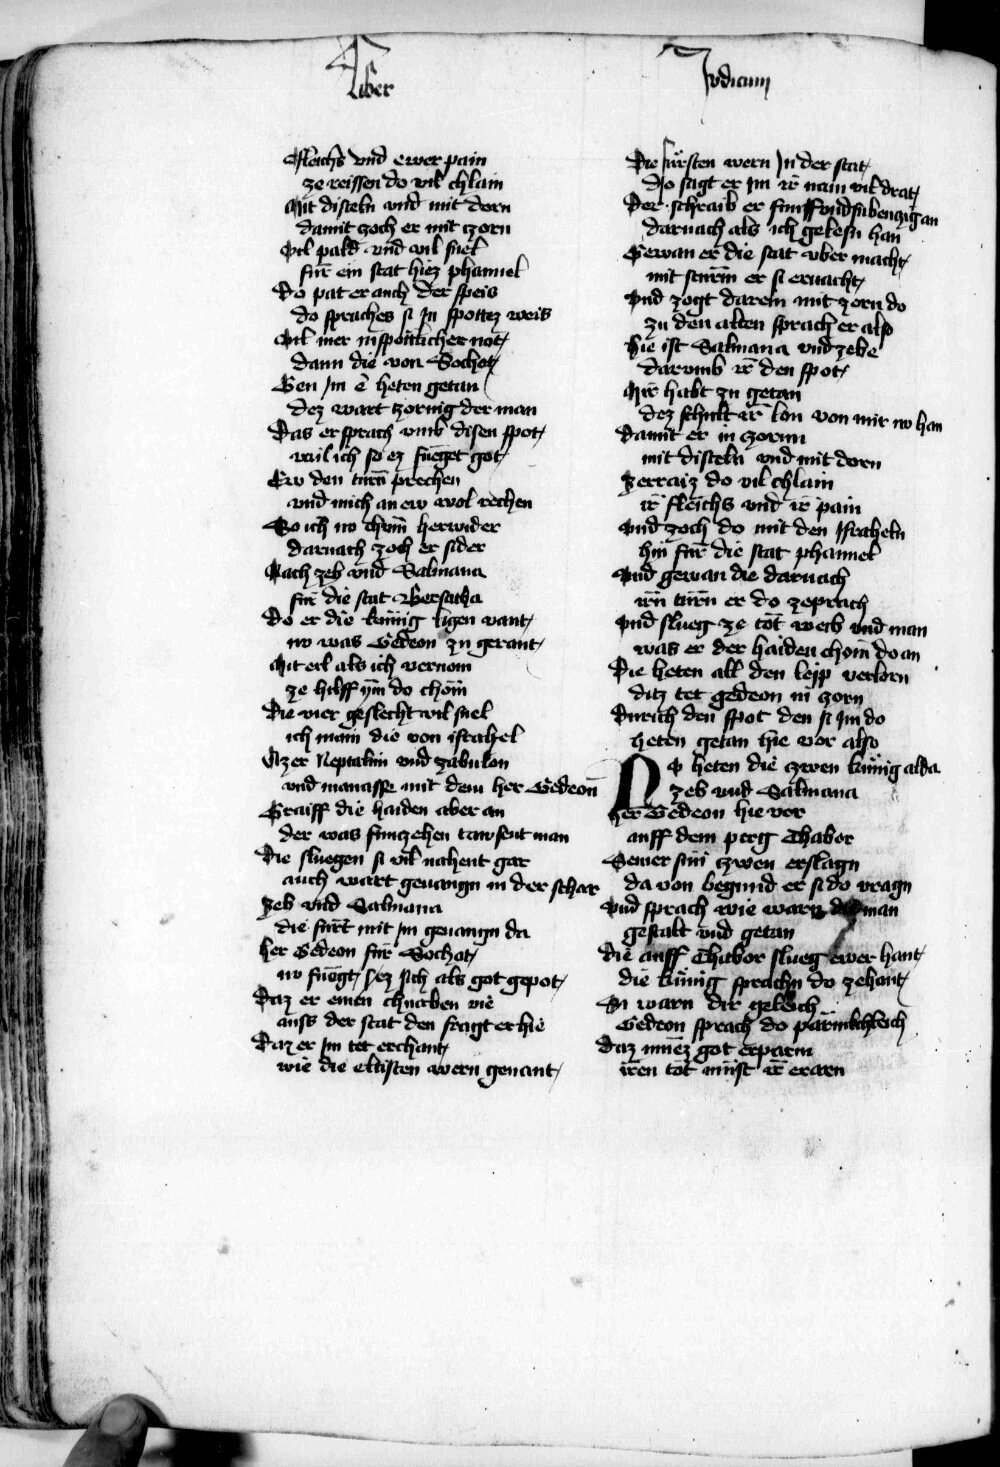 Liber Judicum
Fleichs vnd ewer pain
ze reissen do vil chlain
Mit disteln vnd mit dorn
damit zoch er mit zorn
Vil pald vnd vil snel
für ein stat hiez phanuel
Do pat er auch der speis
do sprachen si In spottez weis
Vil mer in spotlicher not
dann die von Sochot
Gen Im ê heten getan
dez wart zornig der man
Das er sprach vmb disen spot
wil ich so ez fueget got
Ew den turn prechen
vnd mich an ew wol rechen
So ich nv chum herwider
darnach zoch er sider
Nach zeb vnd Salmana
für die stat Bersatha
Do er die künig ligen vant
nv was Gedeon zu gerant
Mit eil als ich vernom
ze hilff ym do chom
Die vier geslecht vil snel
ich main die von israhel
Azer Neptalim vnd zabulon
vnd manasse mit dem her Gedeon
Graiff die haiden aber an
der was funczehen tawsent man
Die sluegen si vil nahent gar
auch wart geuangn in der schar
Zeb vnd Salmana
die fürt mit Im geuangn da
her Gedeon für Sochot
nv fuegt sez sich als got gepot
Daz er einen chnaben vie
auss der stat den fragt er hie
Daz er Im tet erchant
wie die eltisten wern genant
Die fürsten wern In der stat
do sagt er Im ir nam vil drat
Der schraib er fünff vnd sibenczig an
darnach als ich gelesn han
Gewan er die stat vber macht
mit sturm er si ervacht
Vnd zogt darein mit zorn do
zu den alten sprach er also
hie ist Salmana vnd zebe
darvmb ir den spot
Mir habt zu getan
dez schult ir lon von mir nv han
Damit er in zorn
mit disteln vnd mit dorn
Zerraiz do vil chlain
ir fleichs vnd ir pain
Vnd zoch do mit den Israheln
hin für die stat phanuel
Vnd gewan die darnach
irn turn er do zeprach
Vnd slueg ze tot weib vnd man
was er der haiden chom do an
Die heten all den leip verlorn
ditz tet gedeon in zorn
Durich den spot den si Im do
heten getan hie vor also
No heten die zwen künig alda
zeb vnd Salmana
her Gedeon hie vor
auff dem perg Thabor
Seiner sün zwen erslagn
da von begund er si do vragn
Vnd sprach wie warn die man
gestalt vnd getan
die auff Thabor slueg ewer hant
die künig sprachn do zehant
Si warn dir geleich
Gedeon sprach do pärmichleich
Daz muez got erparm
iren tot müst ir erarn